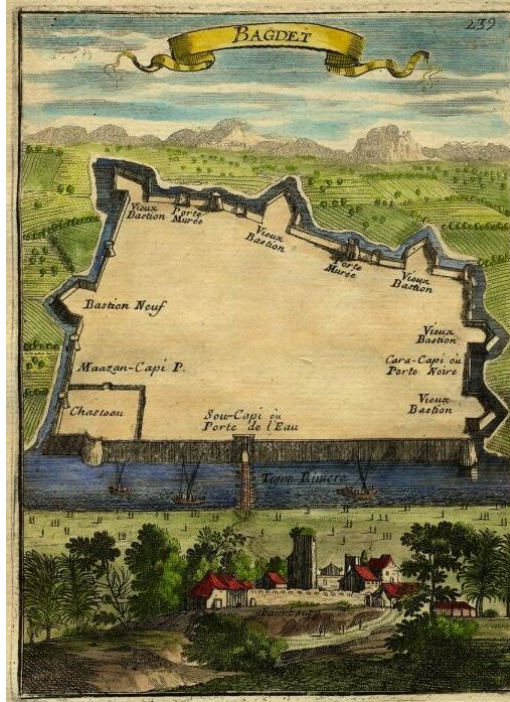 239
BAGDET
Vieux
Bastion
Porte
Murée
Vieux
Bastion
Porte
Murée
Vieux
Bastion
Bastion Neuf
Vieux
Bastion
Maazan-Capi P.
Cara-Capi ou
Porte Noire
Chasteau
Sou-Capi ou
Porte de l'Eau
Vieux
Bastion
Tigre Riviere